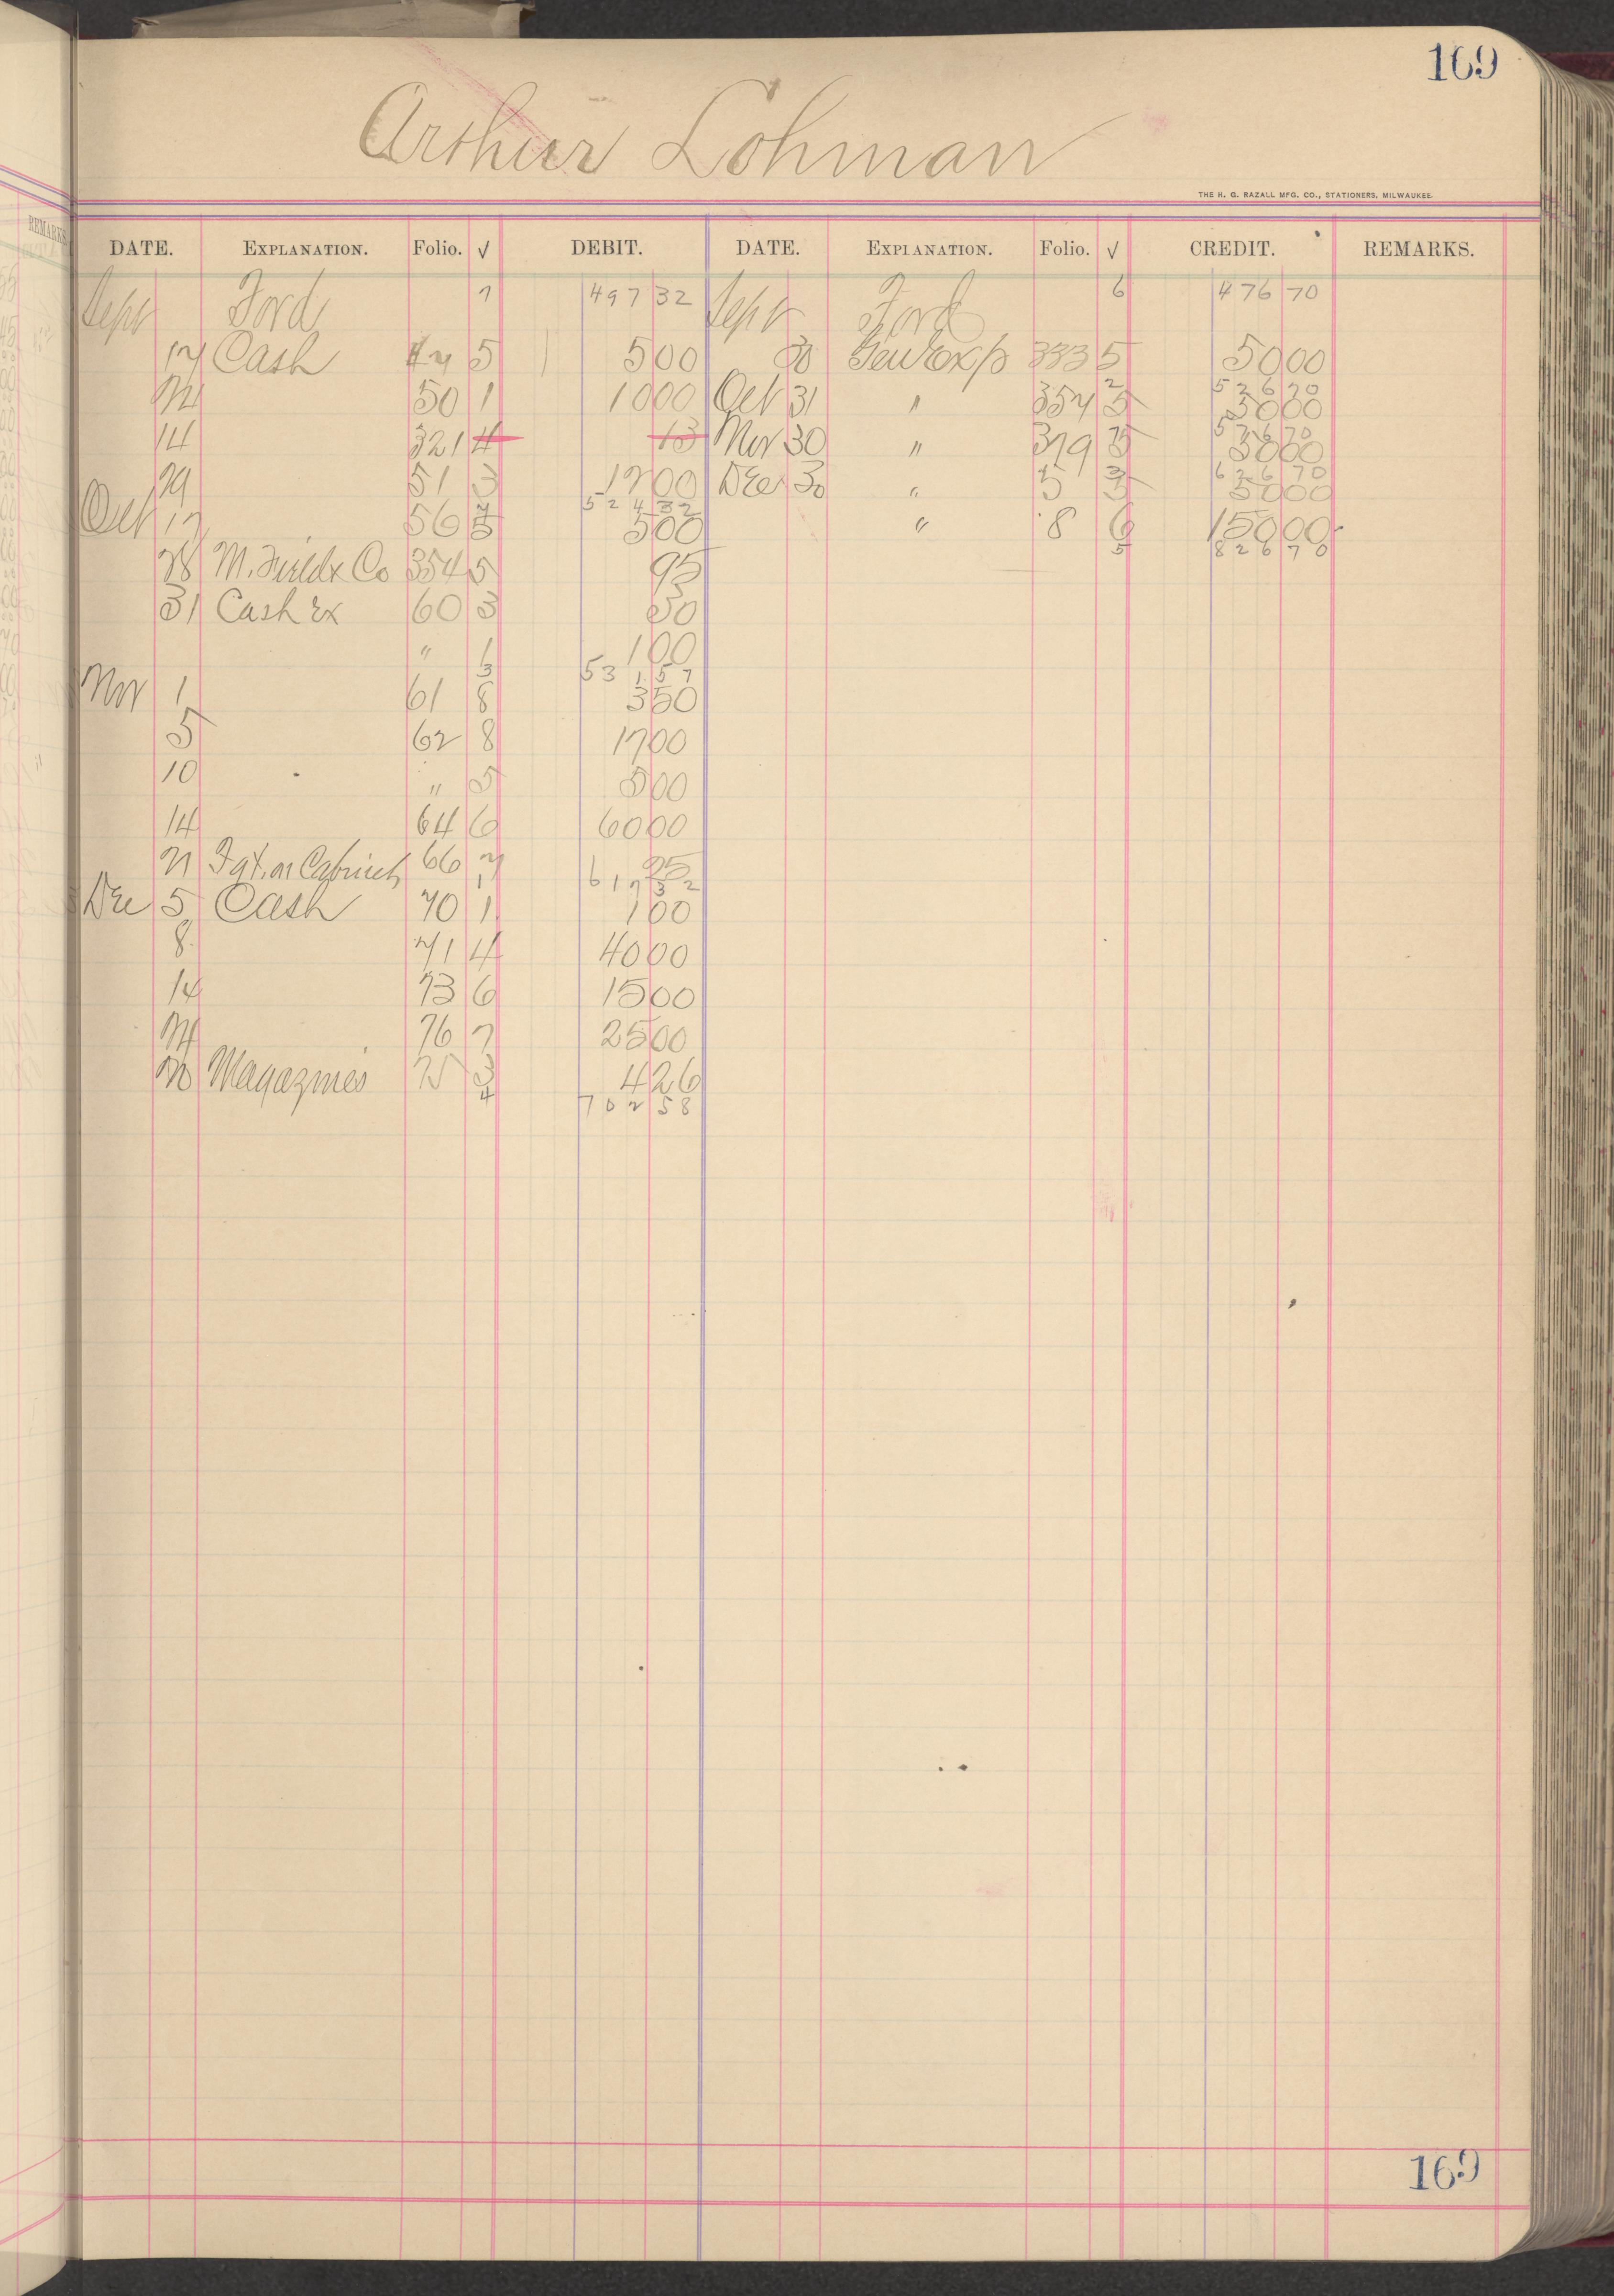 169
Arthur Lohman
THE H. G. RAZALL MFG. CO., STATIONERS, MILWAUKEE.
DATE. EXPLANATION. Folio. √ DEBIT. DATE. EXPLANATION. Folio. √ CREDIT. REMARKS.
Sept Ford 7 497 32 Sept Ford 6 476 70
17 Cash 47 5 5 00 30 Gen Exp 333 5 50 00
24 50 1 10 00 Oct 31 " 354 5 50 00
2 526 70
14 321 4 13 Nov 30 " 379 5 50 00
576 70
29 51 3 12 00 Dec 30 " 5 3 50 00
626 70
524 32
Oct 17 56 5 5 00 " 8 6 150 00
5 826 70
28 M. Field & Co 354 5 95
31 Cash Ex 60 3 30
" 1 1 00
3 531 57
Nov 1 61 8 3 50
5 62 8 17 00
10 " 5 5 00
14 64 6 60 00
21 Fgt. on Cabinet 66 7 25
1 617 32
Dec 5 Cash 70 1 1 00
8 71 4 40 00
14 73 6 15 00
24 76 7 25 00
20 Magazines 75 3 4 26
4 702 58
169